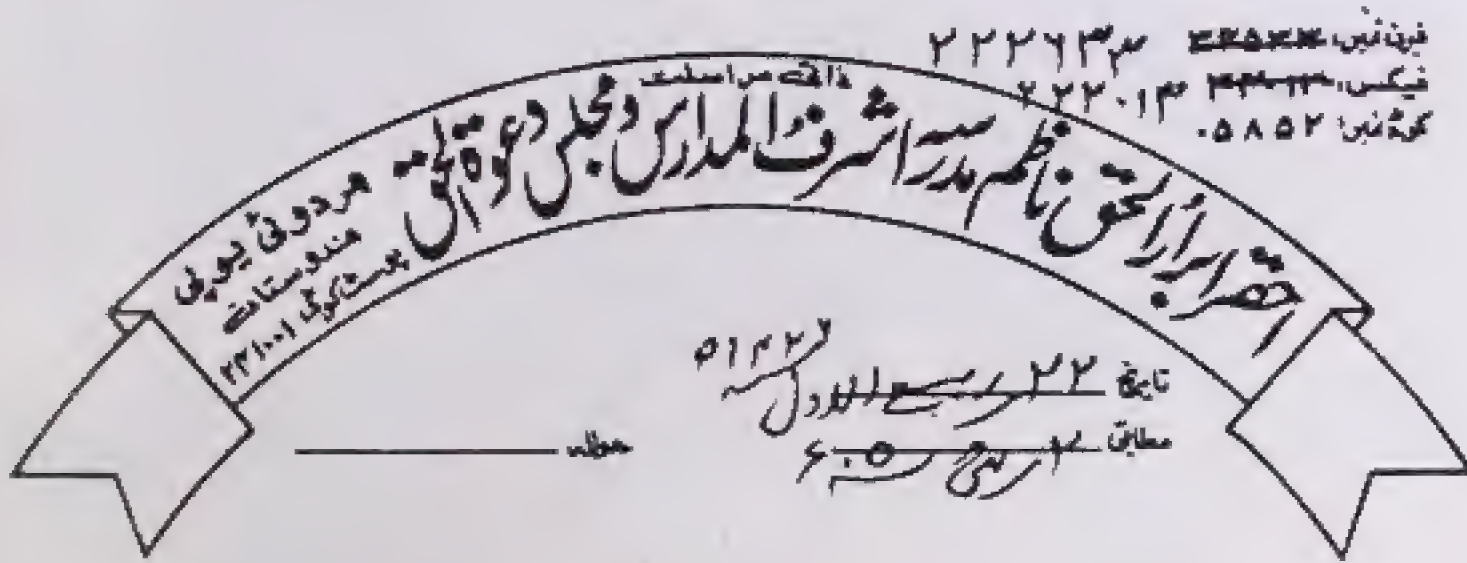 فون نمبر: ۲۲۲۶۳۳
فیکس: ۲۲۲۰۱۳
کوڈ نمبر: ۰۵۸۵۲
ذاتی مراسلت
احقر ابرار الحق ناظم مدرسہ اشرف المدارس و مجلس دعوۃ الحق
ہردوئی یوپی
ہندوستان
پوسٹ کوڈ ۲۴۱۰۰۱
تاریخ ۲۲ ربیع الاول ۱۴۲۶ھ
مطابق ۲ مئی ۰۵ء